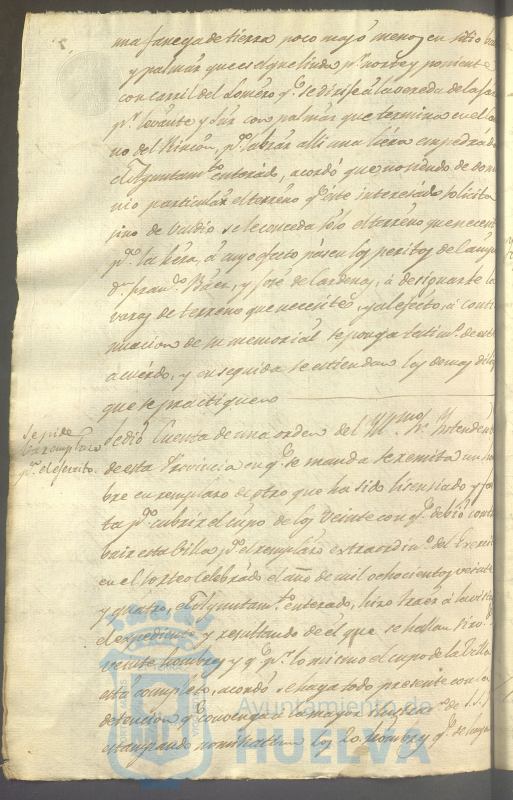 una fanega de tierra poco mas ó menos en sitio
y palmar que es el que linda pr. norte y poniente
con carril del Lomero qe. se dirije á la vereda de la
pr. levante y Sur con palmar que termina en el
no del Rincon, pa. labrar alli una hera empedrada
el Ylyuntamto. enterado, acordó que no siendo de domi
nio particular el terreno qe. este interesado solicita
sino de baldio se le conceda solo el terreno que necesite
pa. la hera, á cuyo efecto pasen los peritos de campo
Dn. Franco. Báez, y José de Cardenas, á designarle las
varas de terreno que necesite, y al efecto, á conti
nuacion de su memorial se ponga testimo. de este
acuerdo, y en seguida se estiendan las demas dilig
que se practiquen
Se pide
un remplazo
pa. el ejercito.
Se dió Cuenta de una orden del Yllmo. Sr. Yntendente
de esta Provincia en qe. se manda se remita un hom
bre en remplazo de otro que ha sido licenciado y fal
ta pa. cubrir el cupo de los veinte con qe. debió contri
buir esta Villa pa. el remplazo extraordino. del Exercito
en el sorteo celebrado el año de mil ochocientos veinte
y quatro, el Ylyuntamto. enterado, hizo traer á la vista
el expediente, y resultando de él que se hallan
veinte hombres y qe. pr. lo mismo el cupo de la Villa
está completo, acordó se haga todo presente con la
detencion qe. convenga á la mayor de S.S.
estampando nominalmte. los 20. hombres qe. se
Ayuntamiento de
HUELVA